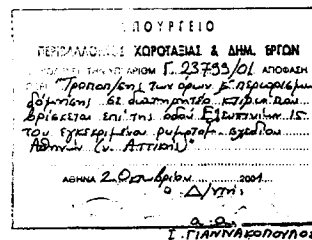 ΥΠΟΥΡΓΕΙΟ
ΠΕΡΙΒΑΛΛΟΝΤΟΣ ΧΩΡΟΤΑΞΙΑΣ & ΔΗΜ. ΕΡΓΩΝ
ΤΗΝ ΥΠ' ΑΡΙΘΜ Γ. 23799/01 ΑΠΟΦΑΣΗ
"Τροποπ/σης των όρων & περιορισμών
δόμησης σε διατηρητέο κτίριο που
βρίσκεται επί της οδού Ελευσινίων 15
του εγκεκριμένου ρυμοτομ. σχεδίου
Αθηνών (ν. Αττικής)"
ΑΘΗΝΑ 2 Οκτωβρίου 2001
Ο Δ/ντής
α.α.
Σ. ΓΙΑΝΝΑΚΟΠΟΥΛΟΣ